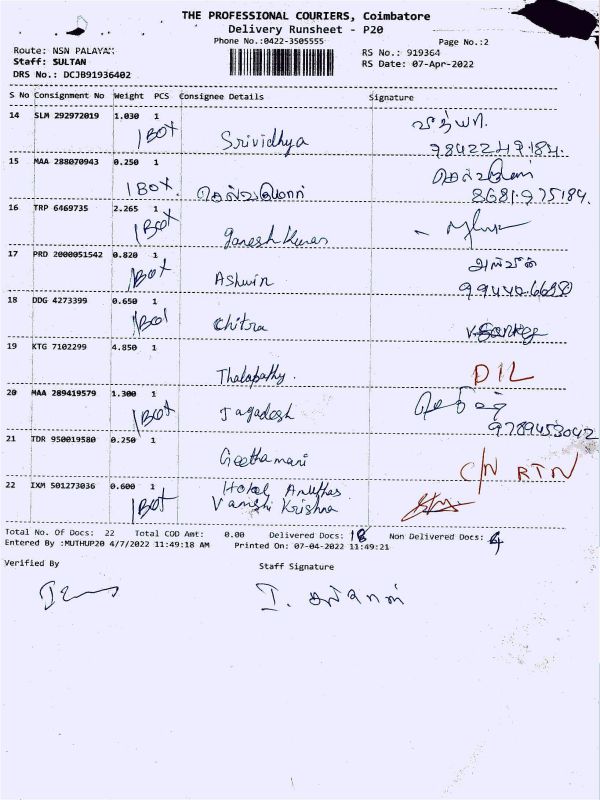 THE PROFESSIONAL COURIERS, Coimbatore
Delivery Runsheet - P20
Phone No.:0422-3505555
Page No.:2
Route: NSN PALAYAM
Staff: SULTAN
DRS No.: DCJB91936402
RS No.: 919364
RS Date: 07-Apr-2022
S No Consignment No Weight PCS Consignee Details Signature
14 SLM 292972019 1.030 1
1 BOX Srividhya
9842249184.
15 MAA 288070943 0.250 1
1 BOX.
8681975184.
16 TRP 6469735 2.265 1
1 Box Ganesh Kumar
17 PRD 2000051542 0.820 1
1 Box Ashwin அஸ்வின்
18 DDG 4273399 0.650 1
1 Box Chitra
19 KTG 7102299 4.850 1
Thalapathy. DIL
20 MAA 289419579 1.300 1
1 Box Jagadesh
9789453042
21 TDR 950019580 0.250 1
Geethamani C/N RTN
22 IXM 501273036 0.600 1
1 Box Hotel
Vamshi Krishna
Total No. Of Docs: 22 Total COD Amt: 0.00 Delivered Docs: 18 Non Delivered Docs: 4
Entered By :MUTHUP20 4/7/2022 11:49:18 AM Printed On: 07-04-2022 11:49:21
Verified By Staff Signature